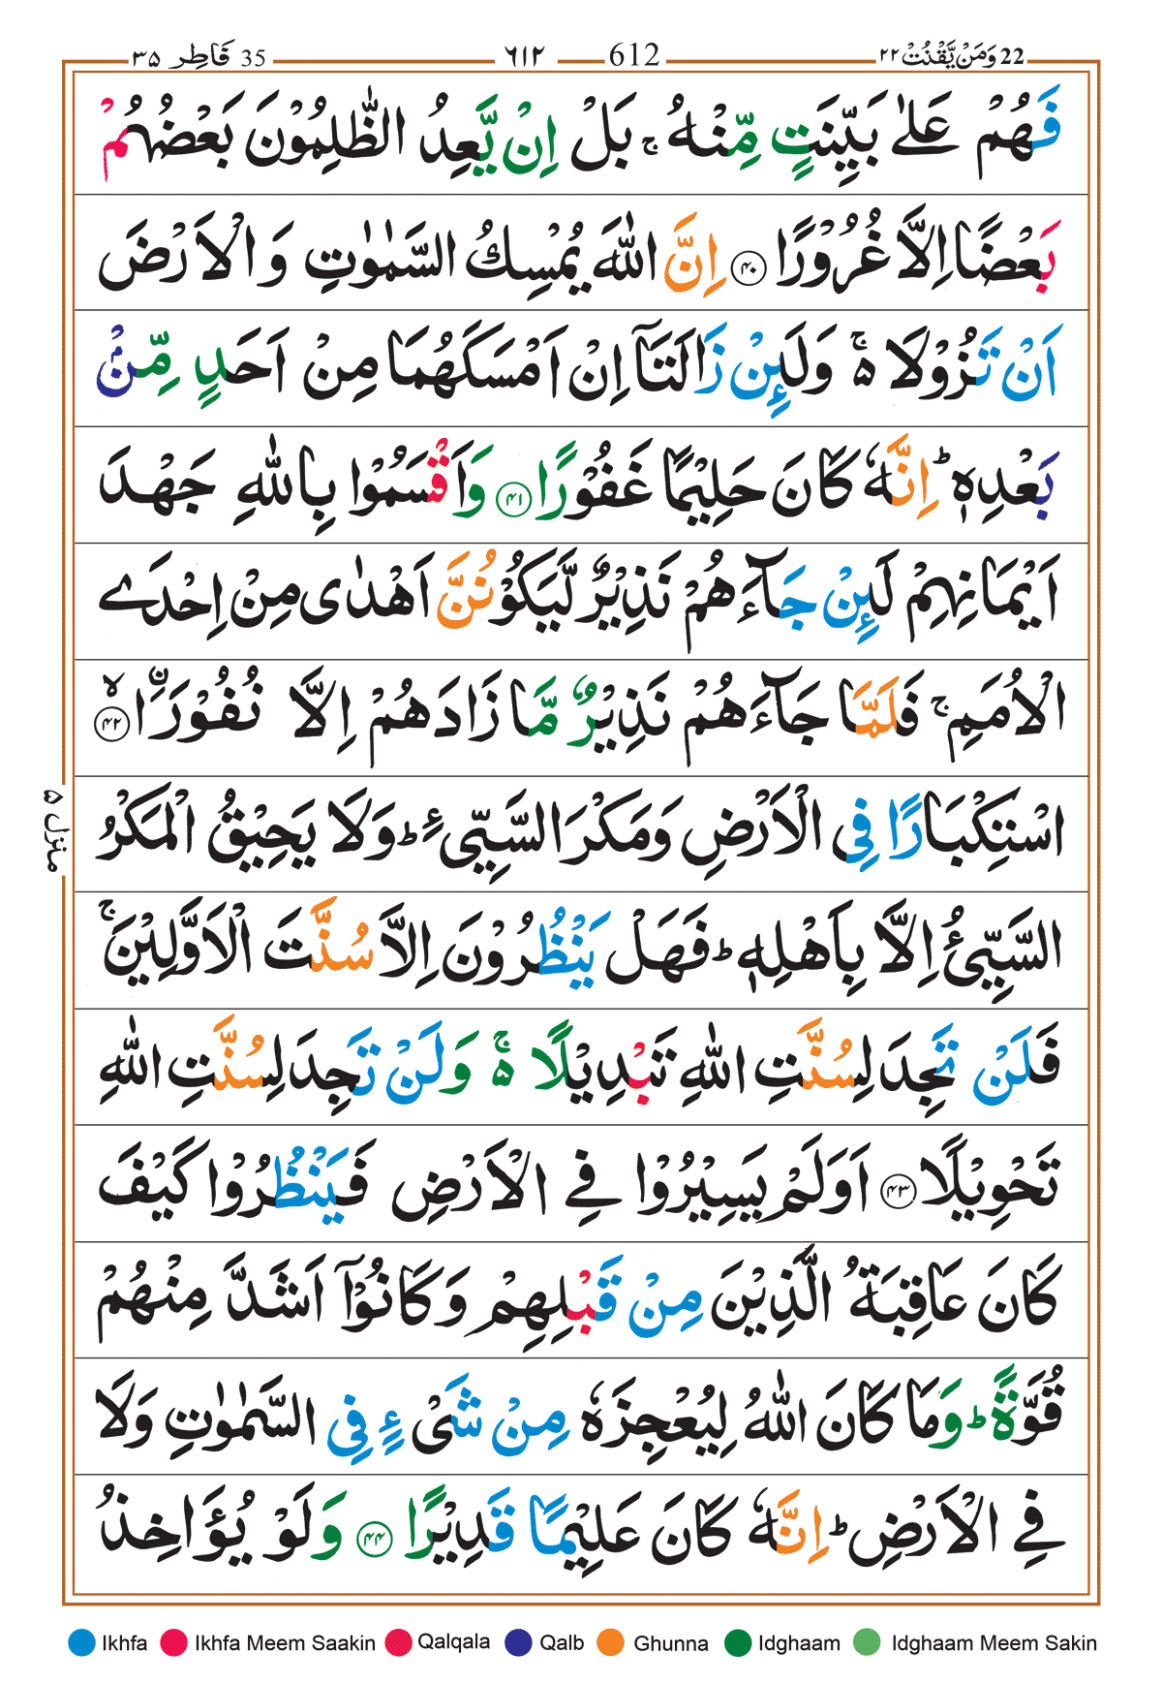 35 فَاطِر ٣٥ — ٦١٢ — 612 — 22 وَمَنْ يَّقْنُتْ ٢٢
فَهُمْ عَلٰى بَيِّنَتٍ مِّنْهُ ۚ بَلْ اِنْ يَّعِدُ الظّٰلِمُوْنَ بَعْضُهُمْ
بَعْضًا اِلَّا غُرُوْرًا ﴿۴۰﴾ اِنَّ اللّٰهَ يُمْسِكُ السَّمٰوٰتِ وَالْاَرْضَ
اَنْ تَزُوْلَا ۚ۬ وَلَئِنْ زَالَتَاۤ اِنْ اَمْسَكَهُمَا مِنْ اَحَدٍ مِّنْۢ
بَعْدِهٖ ؕ اِنَّهٗ كَانَ حَلِيْمًا غَفُوْرًا ﴿۴۱﴾ وَاَقْسَمُوْا بِاللّٰهِ جَهْدَ
اَيْمَانِهِمْ لَئِنْ جَآءَهُمْ نَذِيْرٌ لَّيَكُوْنُنَّ اَهْدٰى مِنْ اِحْدَى
الْاُمَمِ ۚ فَلَمَّا جَآءَهُمْ نَذِيْرٌ مَّا زَادَهُمْ اِلَّا نُفُوْرَا۟ۙ ﴿۴۲﴾
اسْتِكْبَارًا فِى الْاَرْضِ وَمَكْرَ السَّيِّىءِ ؕ وَلَا يَحِيْقُ الْمَكْرُ
السَّيِّىُٔ اِلَّا بِاَهْلِهٖ ؕ فَهَلْ يَنْظُرُوْنَ اِلَّا سُنَّتَ الْاَوَّلِيْنَ ۚ
فَلَنْ تَجِدَ لِسُنَّتِ اللّٰهِ تَبْدِيْلًا ۚ۬ وَلَنْ تَجِدَ لِسُنَّتِ اللّٰهِ
تَحْوِيْلًا ﴿۴۳﴾ اَوَلَمْ يَسِيْرُوْا فِى الْاَرْضِ فَيَنْظُرُوْا كَيْفَ
كَانَ عَاقِبَةُ الَّذِيْنَ مِنْ قَبْلِهِمْ وَكَانُوْۤا اَشَدَّ مِنْهُمْ
قُوَّةً ؕ وَمَا كَانَ اللّٰهُ لِيُعْجِزَهٗ مِنْ شَىْءٍ فِى السَّمٰوٰتِ وَلَا
فِى الْاَرْضِ ؕ اِنَّهٗ كَانَ عَلِيْمًا قَدِيْرًا ﴿۴۴﴾ وَلَوْ يُؤَاخِذُ
منزل ۵
Ikhfa Ikhfa Meem Saakin Qalqala Qalb Ghunna Idghaam Idghaam Meem Sakin